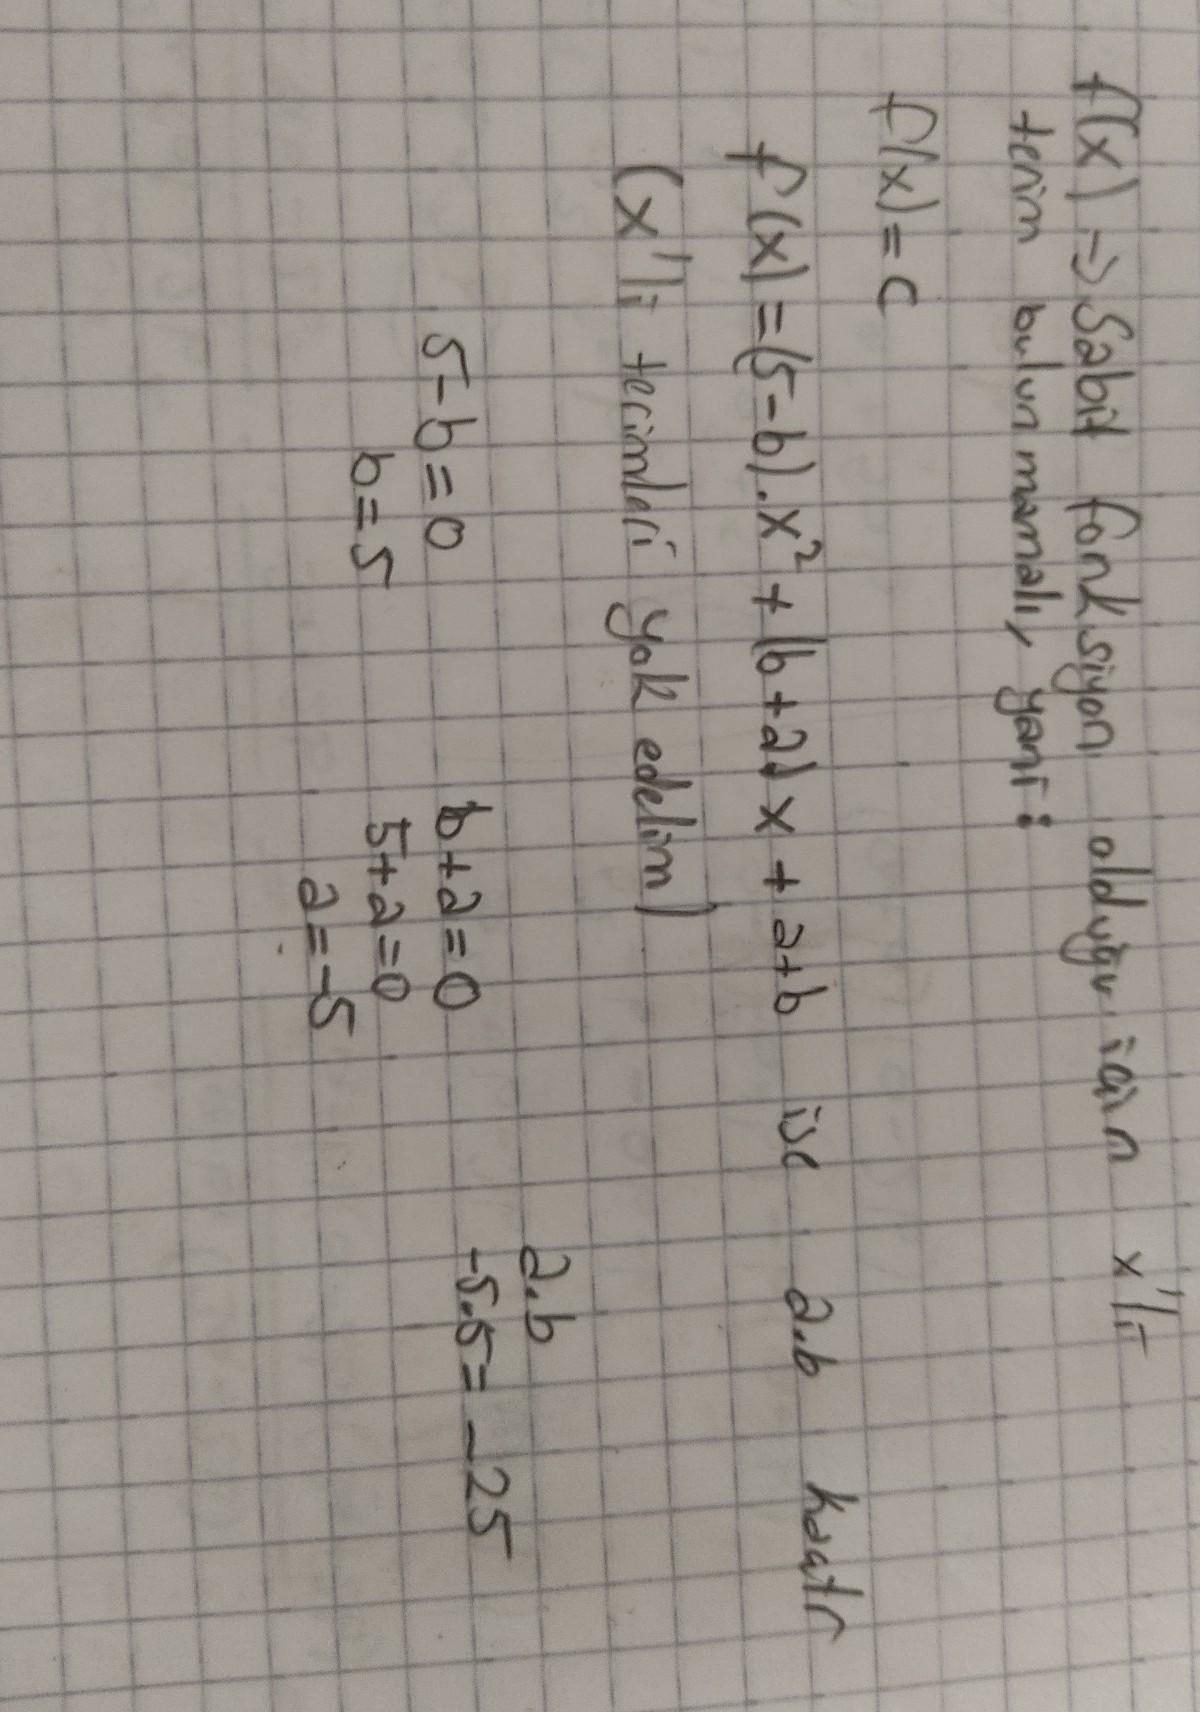 f(x) => Sabit fonksiyon olduğu için x'li
terim bulunmamalı, yani:
f(x) = c
f(x) = (5-b).x² + (b+a)x + a+b ise a.b kaatr
(x'li terimleri yok edelim)
5-b=0 b+a=0 a.b
b=5 5+a=0 -5.5= -25
a=-5